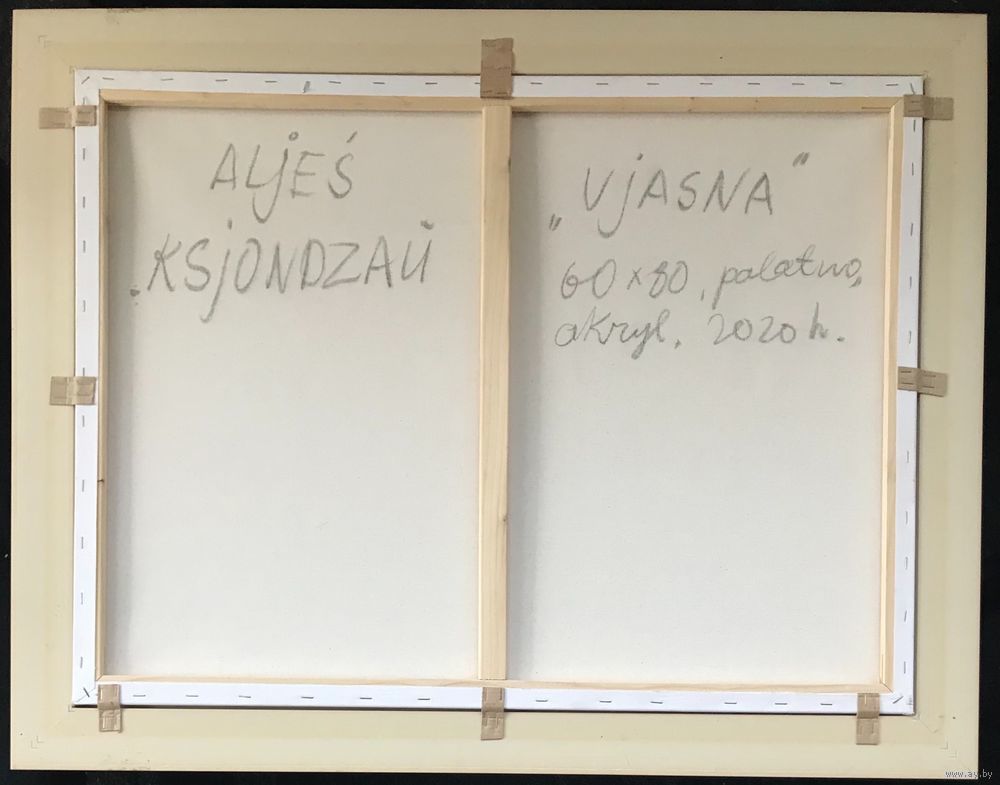 ALJEŚ
KSJONDZAŬ
„VJASNA”
60x80, palatno,
akryl, 2020 h.
www.ay.by